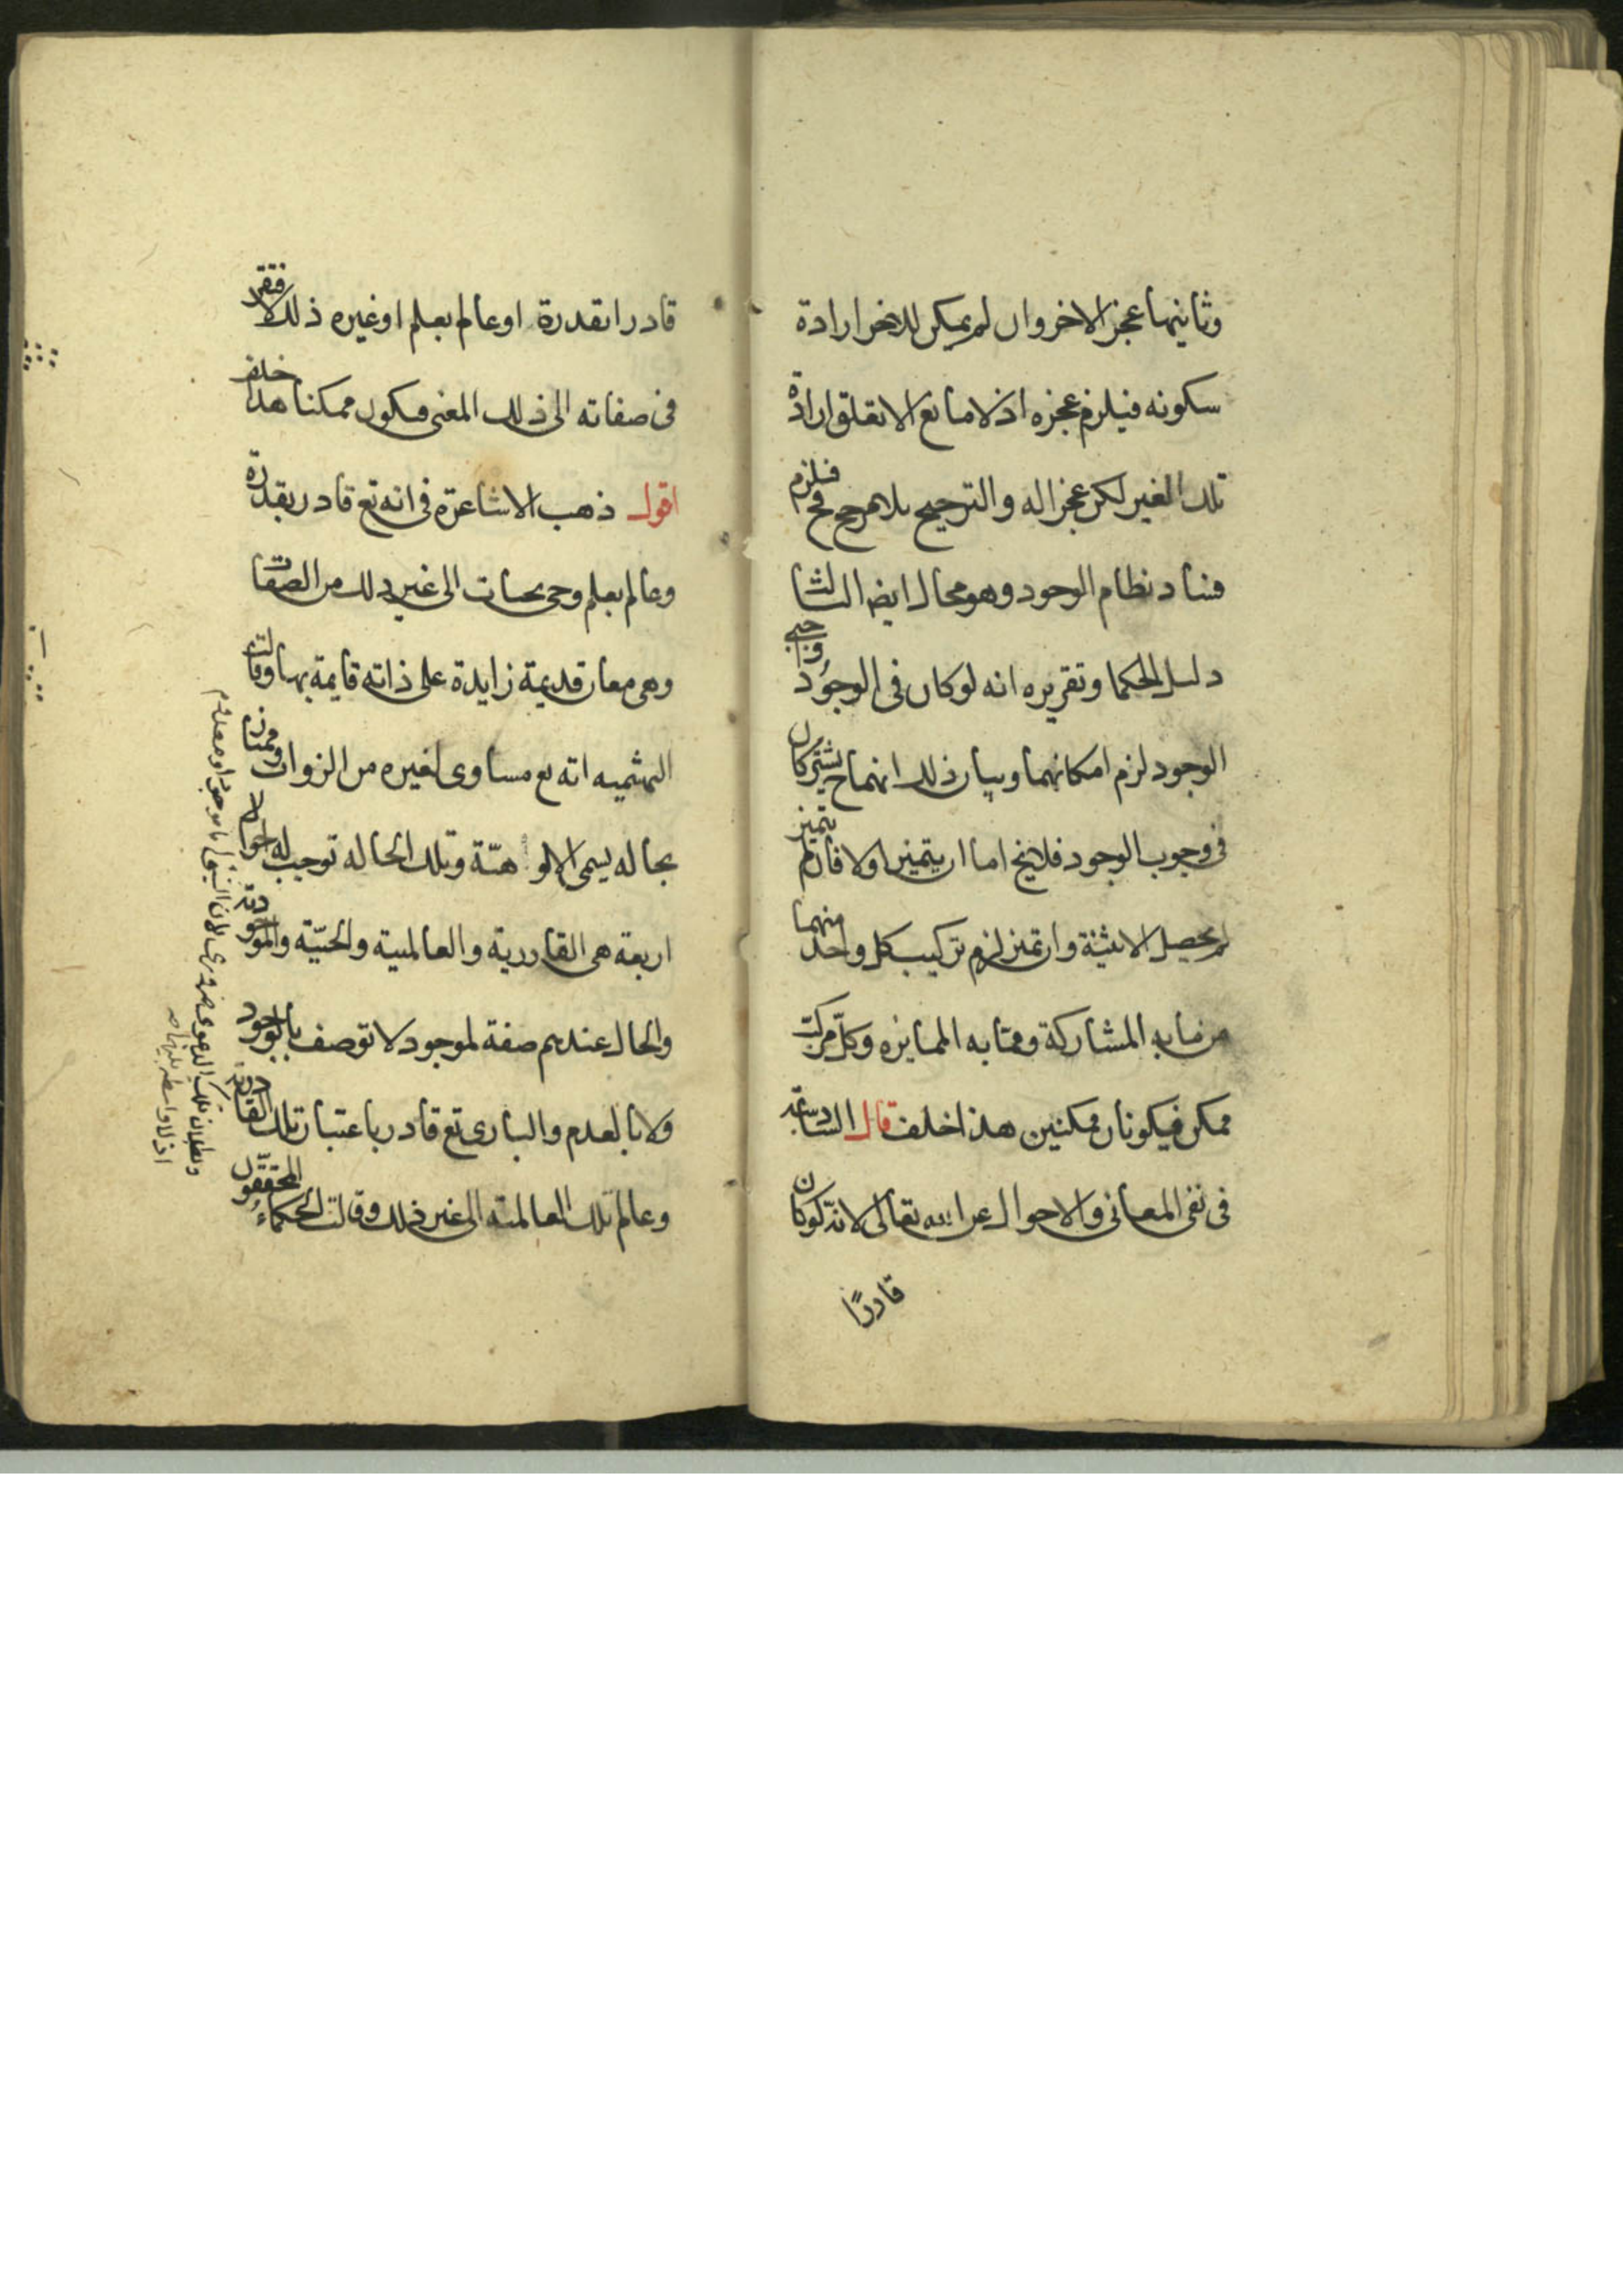 وثانيهما عجز الاخر وان لم يمكن للاخر ارادة
سكونه فيلزم عجزه اذ لا مانع الا تعلق ارادة
تلك الغير لكن عجز اله والترجيح بلا مرجح مح فيلزم
فساد نظام الوجود وهو محال ايضا الثالث
دليل الحكما وتقريره انه لو كان فى الوجود واجبى
الوجود لزم امكانهما وبيان ذلك انهما ح يشتركان
فى وجوب الوجود فلايخ اما ان يتميزا ولا فان لم يتميز
لم يحصل الاثنية وان تميز لزم تركيب كل واحد منهما
من ما به المشاركة ومما به الممايزه وكل مركب
ممكن فيكونان ممكنين هذا خلف قال السادسة
فى نفى المعانى والاحوال عن الله تعالى لانه لو كان
قادرًا
قادرا بقدرة او عالم بعلم او غيره ذلك لافتقر
فى صفاته الى ذلك المعنى فيكون ممكنا هذا خلف
اقول ذهب الاشاعرة فى انه تع قادر بقدرة
وعالم بعلم وحى بحيات الى غير ذلك من الصفات
وهى معان قديمة زايدة على ذاته قايمة بها وقالت
البهثميه انه تع مساوى لغيره من الزوات وممتاز
بحاله يسمى الالوهيّة وتلك الحاله توجب له احوالا
اربعة هى القادرية والعالمية والحيّية والموجودية
والحال عندهم صفة لموجود لا توصف بالوجود
ولا بالعدم والبارى تع قادر باعتبار تلك القادرية
وعالم تلك العالمية الى غير ذلك وقالت الحكماء والمحققون
وبطلان تلك الدعوى ضرورى لان الشيئ اما موجود او معدوم
اذ لا واسطه